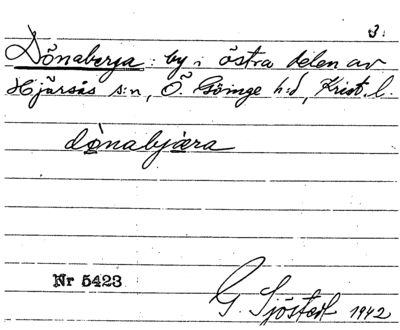 3.
Dönaberga: by i östra delen av
Hjärsås s:n, Ö. Göinge h:d, Krist. l.
dònabjæra
Nr 5423
G. Sjöstedt 1942